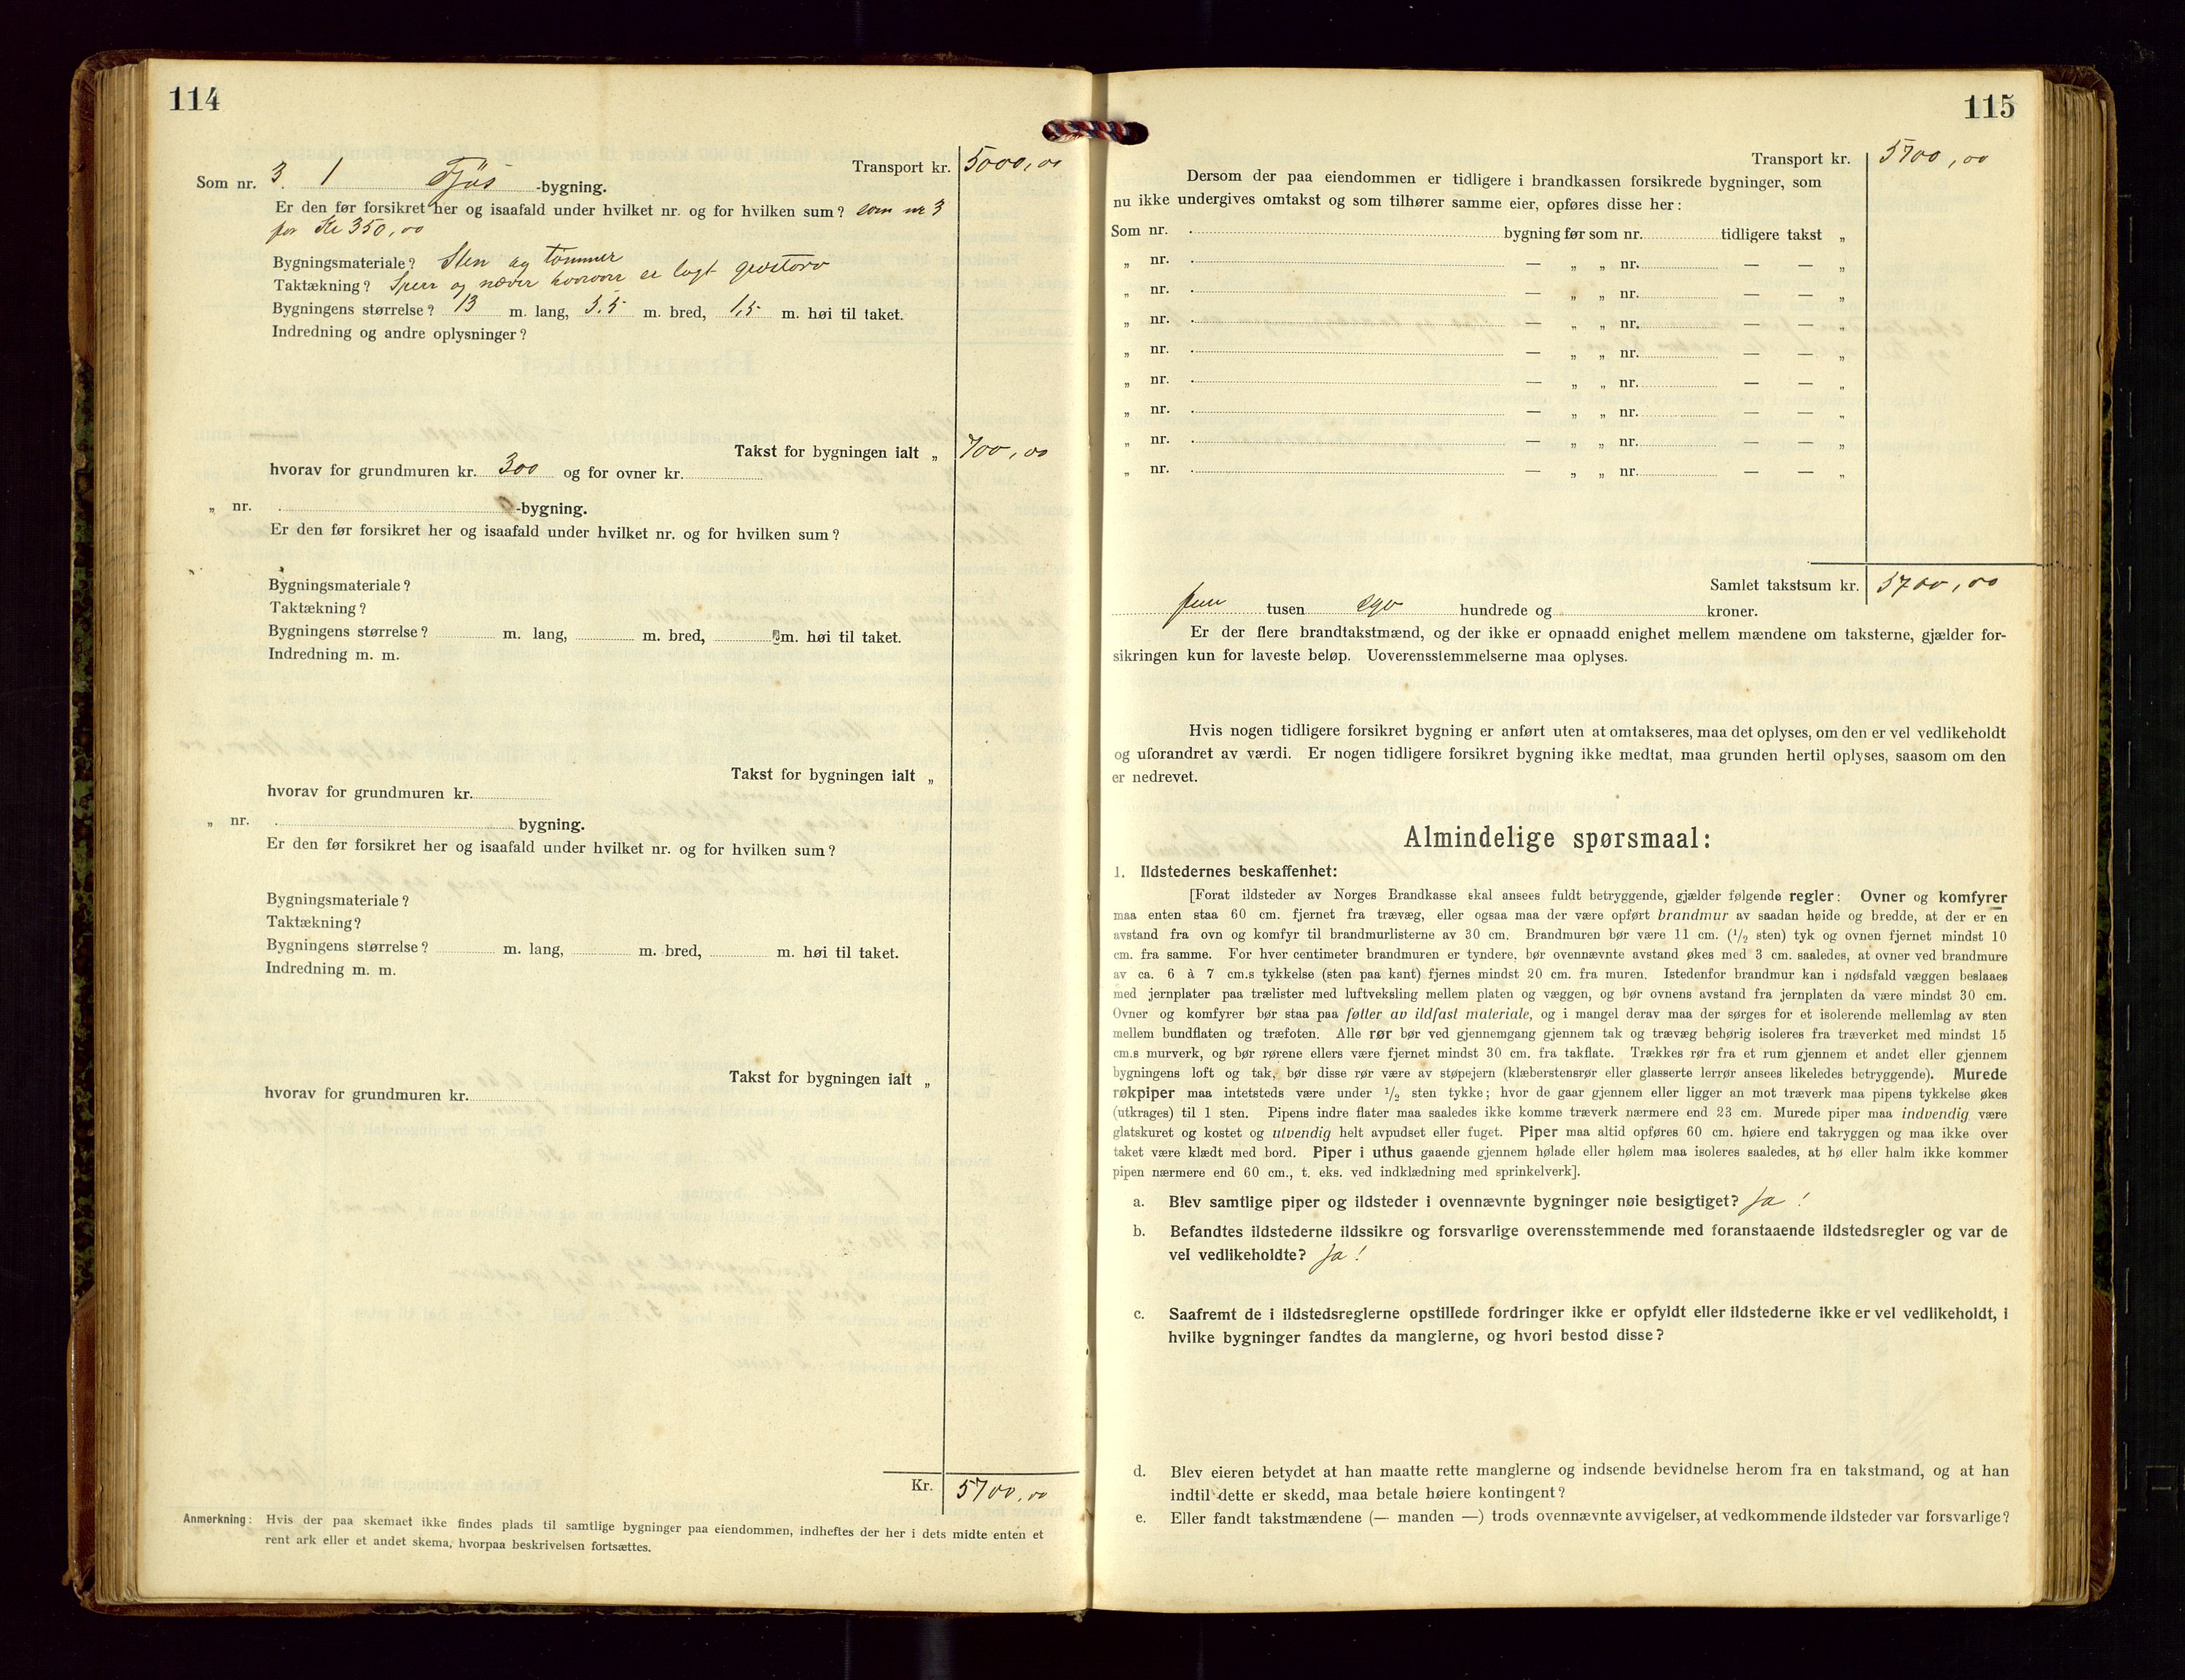 114
Transport kr. 5000,00
Som nr. 3. 1 Fjös -bygning.
Er den før forsikret her og isaafald under hvilket nr. og for hvilken sum? som nr 3
for Kr 350,00
Bygningsmateriale? Sten og tömmer
Taktækning? Sperr og næver hvorover er lagt græstorv
Bygningens størrelse? 13 m. lang, 5.5 m. bred, 1,5 m. høi til taket.
Indredning og andre oplysninger?
Takst for bygningen ialt „ 700,00
hvorav for grundmuren kr. 300 og for ovner kr.
„ nr. -bygning.
Er den før forsikret her og isaafald under hvilket nr. og for hvilken sum?
Bygningsmateriale?
Taktækning?
Bygningens størrelse? m. lang, m. bred, m. høi til taket.
Indredning m. m.
Takst for bygningen ialt „
hvorav for grundmuren kr.
„ nr. bygning.
Er den før forsikret her og isaafald under hvilket nr. og for hvilken sum?
Bygningsmateriale?
Taktækning?
Bygningens størrelse? m. lang, m. bred, m. høi til taket.
Indredning m. m.
Takst for bygningen ialt „
hvorav for grundmuren kr.
Kr. 5700,00
Anmerkning: Hvis der paa skemaet ikke findes plads til samtlige bygninger paa eiendommen, indheftes der her i dets midte enten et
rent ark eller et andet skema, hvorpaa beskrivelsen fortsættes.
115
Transport kr. 5700,00
Dersom der paa eiendommen er tidligere i brandkassen forsikrede bygninger, som
nu ikke undergives omtakst og som tilhører samme eier, opføres disse her:
Som nr. bygning før som nr. tidligere takst „
„ nr. — „ „ nr. — — „
„ nr. — „ „ nr. — — „
„ nr. — „ „ nr. — — „
„ nr. — „ „ nr. — — „
„ nr. — „ „ nr. — — „
„ nr. — „ „ nr. — — „
„ nr. — „ „ nr. — — „
„ nr. — „ „ nr. — — „
Samlet takstsum kr. 5700,00
fem tusen syv hundrede og kroner.
Er der flere brandtakstmænd, og der ikke er opnaadd enighet mellem mændene om taksterne, gjælder for-
sikringen kun for laveste beløp. Uoverensstemmelserne maa oplyses.
Hvis nogen tidligere forsikret bygning er anført uten at omtakseres, maa det oplyses, om den er vel vedlikeholdt
og uforandret av værdi. Er nogen tidligere forsikret bygning ikke medtat, maa grunden hertil oplyses, saasom om den
er nedrevet.
Almindelige spørsmaal:
1. Ildstedernes beskaffenhet:
[Forat ildsteder av Norges Brandkasse skal ansees fuldt betryggende, gjælder følgende regler: Ovner og komfyrer
maa enten staa 60 cm. fjernet fra trævæg, eller ogsaa maa der være opført brandmur av saadan høide og bredde, at der er en
avstand fra ovn og komfyr til brandmurlisterne av 30 cm. Brandmuren bør være 11 cm. (1/2 sten) tyk og ovnen fjernet mindst 10
cm. fra samme. For hver centimeter brandmuren er tyndere, bør ovennævnte avstand økes med 3 cm. saaledes, at ovner ved brandmure
av ca. 6 à 7 cm.s tykkelse (sten paa kant) fjernes mindst 20 cm. fra muren. Istedenfor brandmur kan i nødsfald væggen beslaaes
med jernplater paa trælister med luftveksling mellem platen og væggen, og bør ovnens avstand fra jernplaten da være mindst 30 cm.
Ovner og komfyrer bør staa paa føtter av ildfast materiale, og i mangel derav maa der sørges for et isolerende mellemlag av sten
mellem bundflaten og træfoten. Alle rør bør ved gjennemgang gjennem tak og trævæg behørig isoleres fra træverket med mindst 15
cm.s murverk, og bør rørene ellers være fjernet mindst 30 cm. fra takflate. Trækkes rør fra et rum gjennem et andet eller gjennem
bygningens loft og tak, bør disse rør være av støpejern (klæberstensrør eller glasserte lerrør ansees likeledes betryggende). Murede
røkpiper maa intetsteds være under 1/2 sten tykke; hvor de gaar gjennem eller ligger an mot træverk maa pipens tykkelse økes
(utkrages) til 1 sten. Pipens indre flater maa saaledes ikke komme træverk nærmere end 23 cm. Murede piper maa indvendig være
glatskuret og kostet og utvendig helt avpudset eller fuget. Piper maa altid opføres 60 cm. høiere end takryggen og maa ikke over
taket være klædt med bord. Piper i uthus gaaende gjennem hølade eller hølem maa isoleres saaledes, at hø eller halm ikke kommer
pipen nærmere end 60 cm., t. eks. ved indklædning med sprinkelverk].
a. Blev samtlige piper og ildsteder i ovennævnte bygninger nøie besigtiget? Ja!
b. Befandtes ildstederne ildssikre og forsvarlige overensstemmende med foranstaaende ildstedsregler og var de
vel vedlikeholdte? Ja!
c. Saafremt de i ildstedsreglerne opstillede fordringer ikke er opfyldt eller ildstederne ikke er vel vedlikeholdt, i
hvilke bygninger fandtes da manglerne, og hvori bestod disse?
d. Blev eieren betydet at han maatte rette manglerne og indsende bevidnelse herom fra en takstmand, og at han
indtil dette er skedd, maa betale høiere kontingent?
e. Eller fandt takstmændene (— manden —) trods ovennævnte avvigelser, at vedkommende ildsteder var forsvarlige?